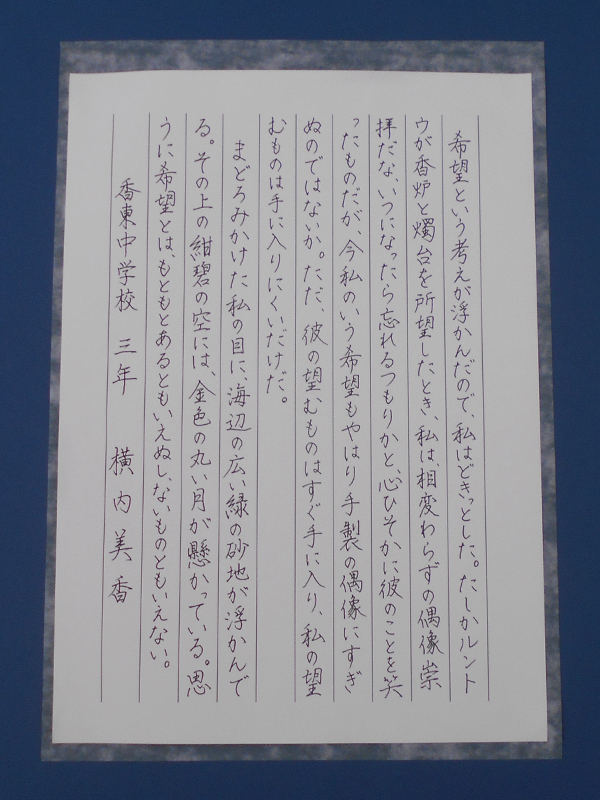 希望という考えが浮かんだので、私はどきっとした。たしかルント
ウが香炉と燭台を所望したとき、私は、相変わらずの偶像崇
拝だな、いつになったら忘れるつもりかと、心ひそかに彼のことを笑
ったものだが、今私のいう希望もやはり手製の偶像にすぎ
ぬのではないか。ただ、彼の望むものはすぐ手に入り、私の望
むものは手に入りにくいだけだ。
まどろみかけた私の目に、海辺の広い緑の砂地が浮かんで
る。その上の紺碧の空には、金色の丸い月が懸かっている。思
うに希望とは、もともとあるともいえぬし、ないものともいえない。
香東中学校 三年 横内美香